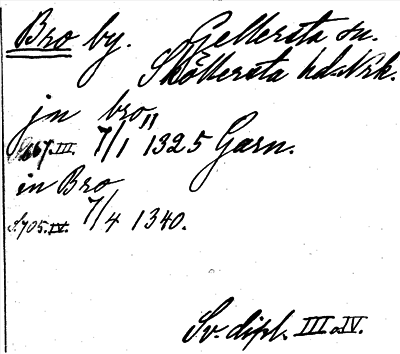 Bro by. Gellersta sn.
Sköllersta hd. Nrk.
jn bro"
667. III. 7/1 1325 Garn.
in Bro
S. 705. IV. 7/4 1340.
Sv. dipl. III o. IV.